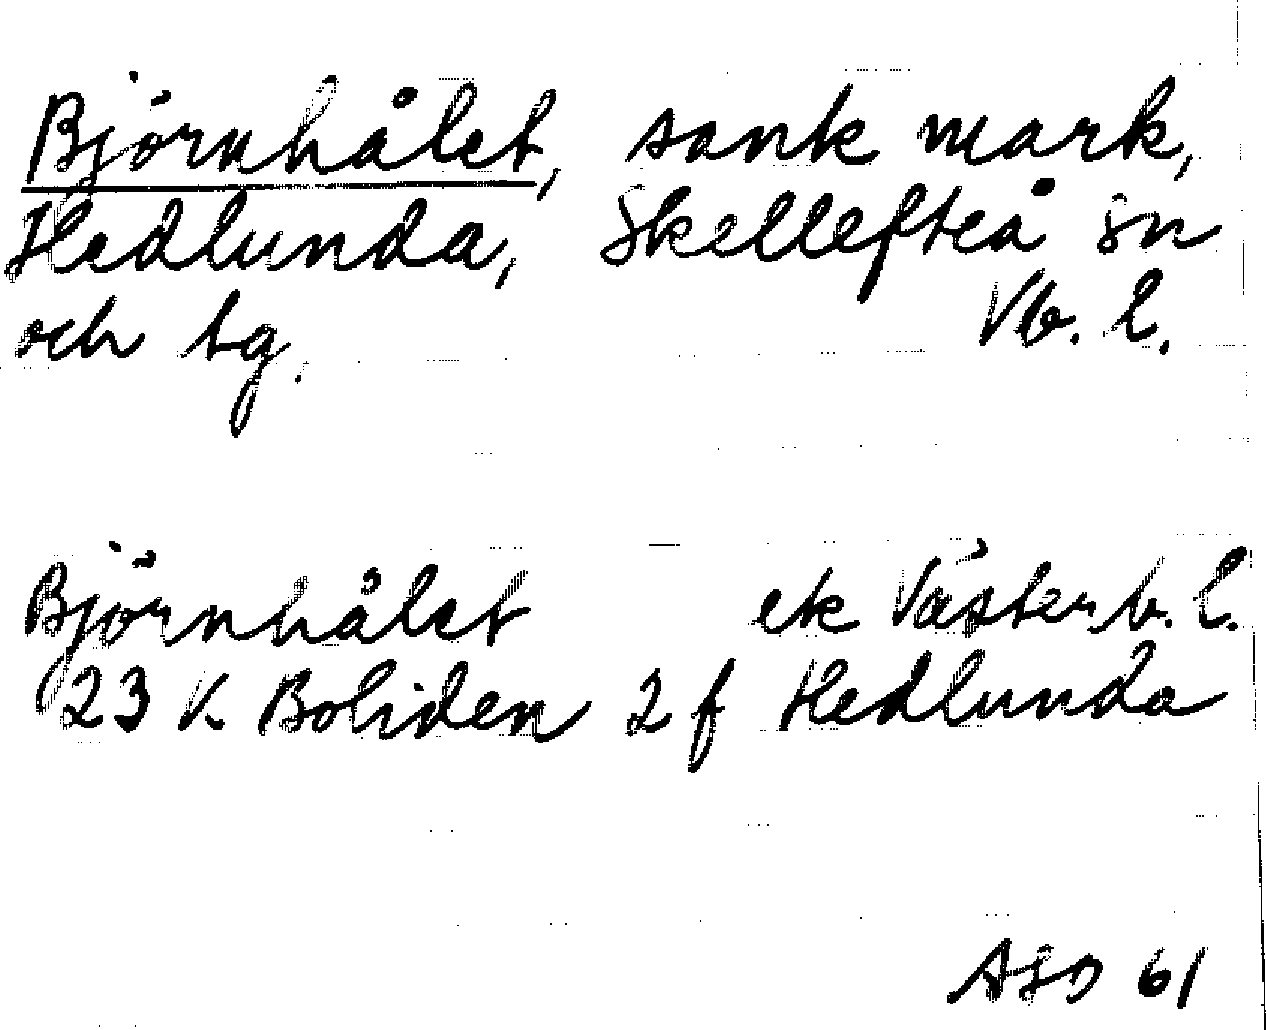 Björnhålet, sank mark,
Hedlunda, Skellefteå sn
och tg. Vb. l.
Björnhålet ek Västerb. l.
23 K Boliden 2 f Hedlunda
61